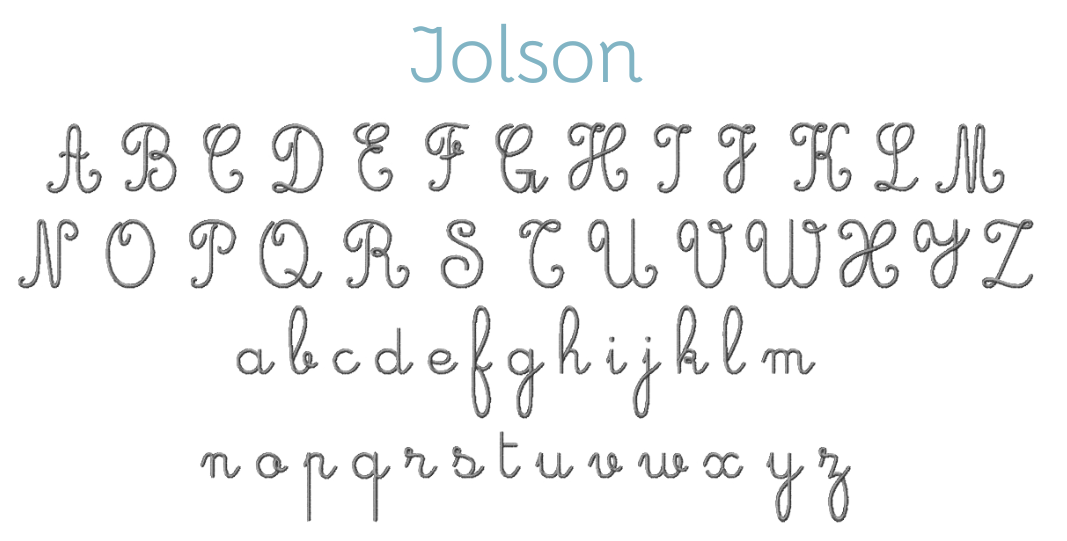 Jolson
A B C D E F G H I J K L M
N O P Q R S T U V W X Y Z
a b c d e f g h i j k l m
n o p q r s t u v w x y z